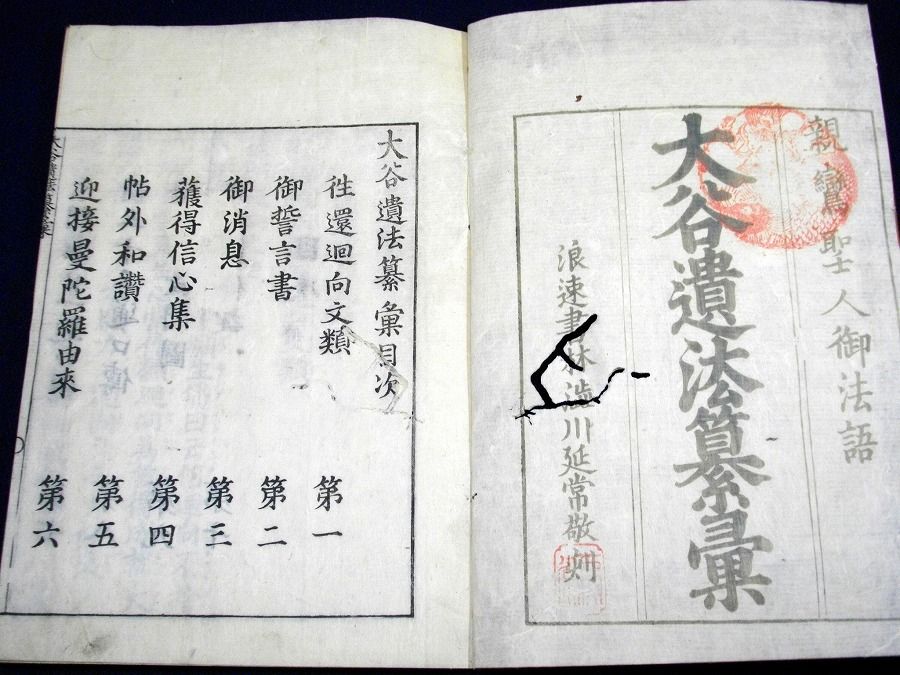 親鸞聖人御法語
大谷遺法纂彙
浪速書林澁川延常敬刻
大谷遺法纂彙目次
徃還迴向文類 第一
御誓言書 第二
御消息 第三
獲得信心集 第四
帖外和讚 第五
迎接曼陀羅由來 第六